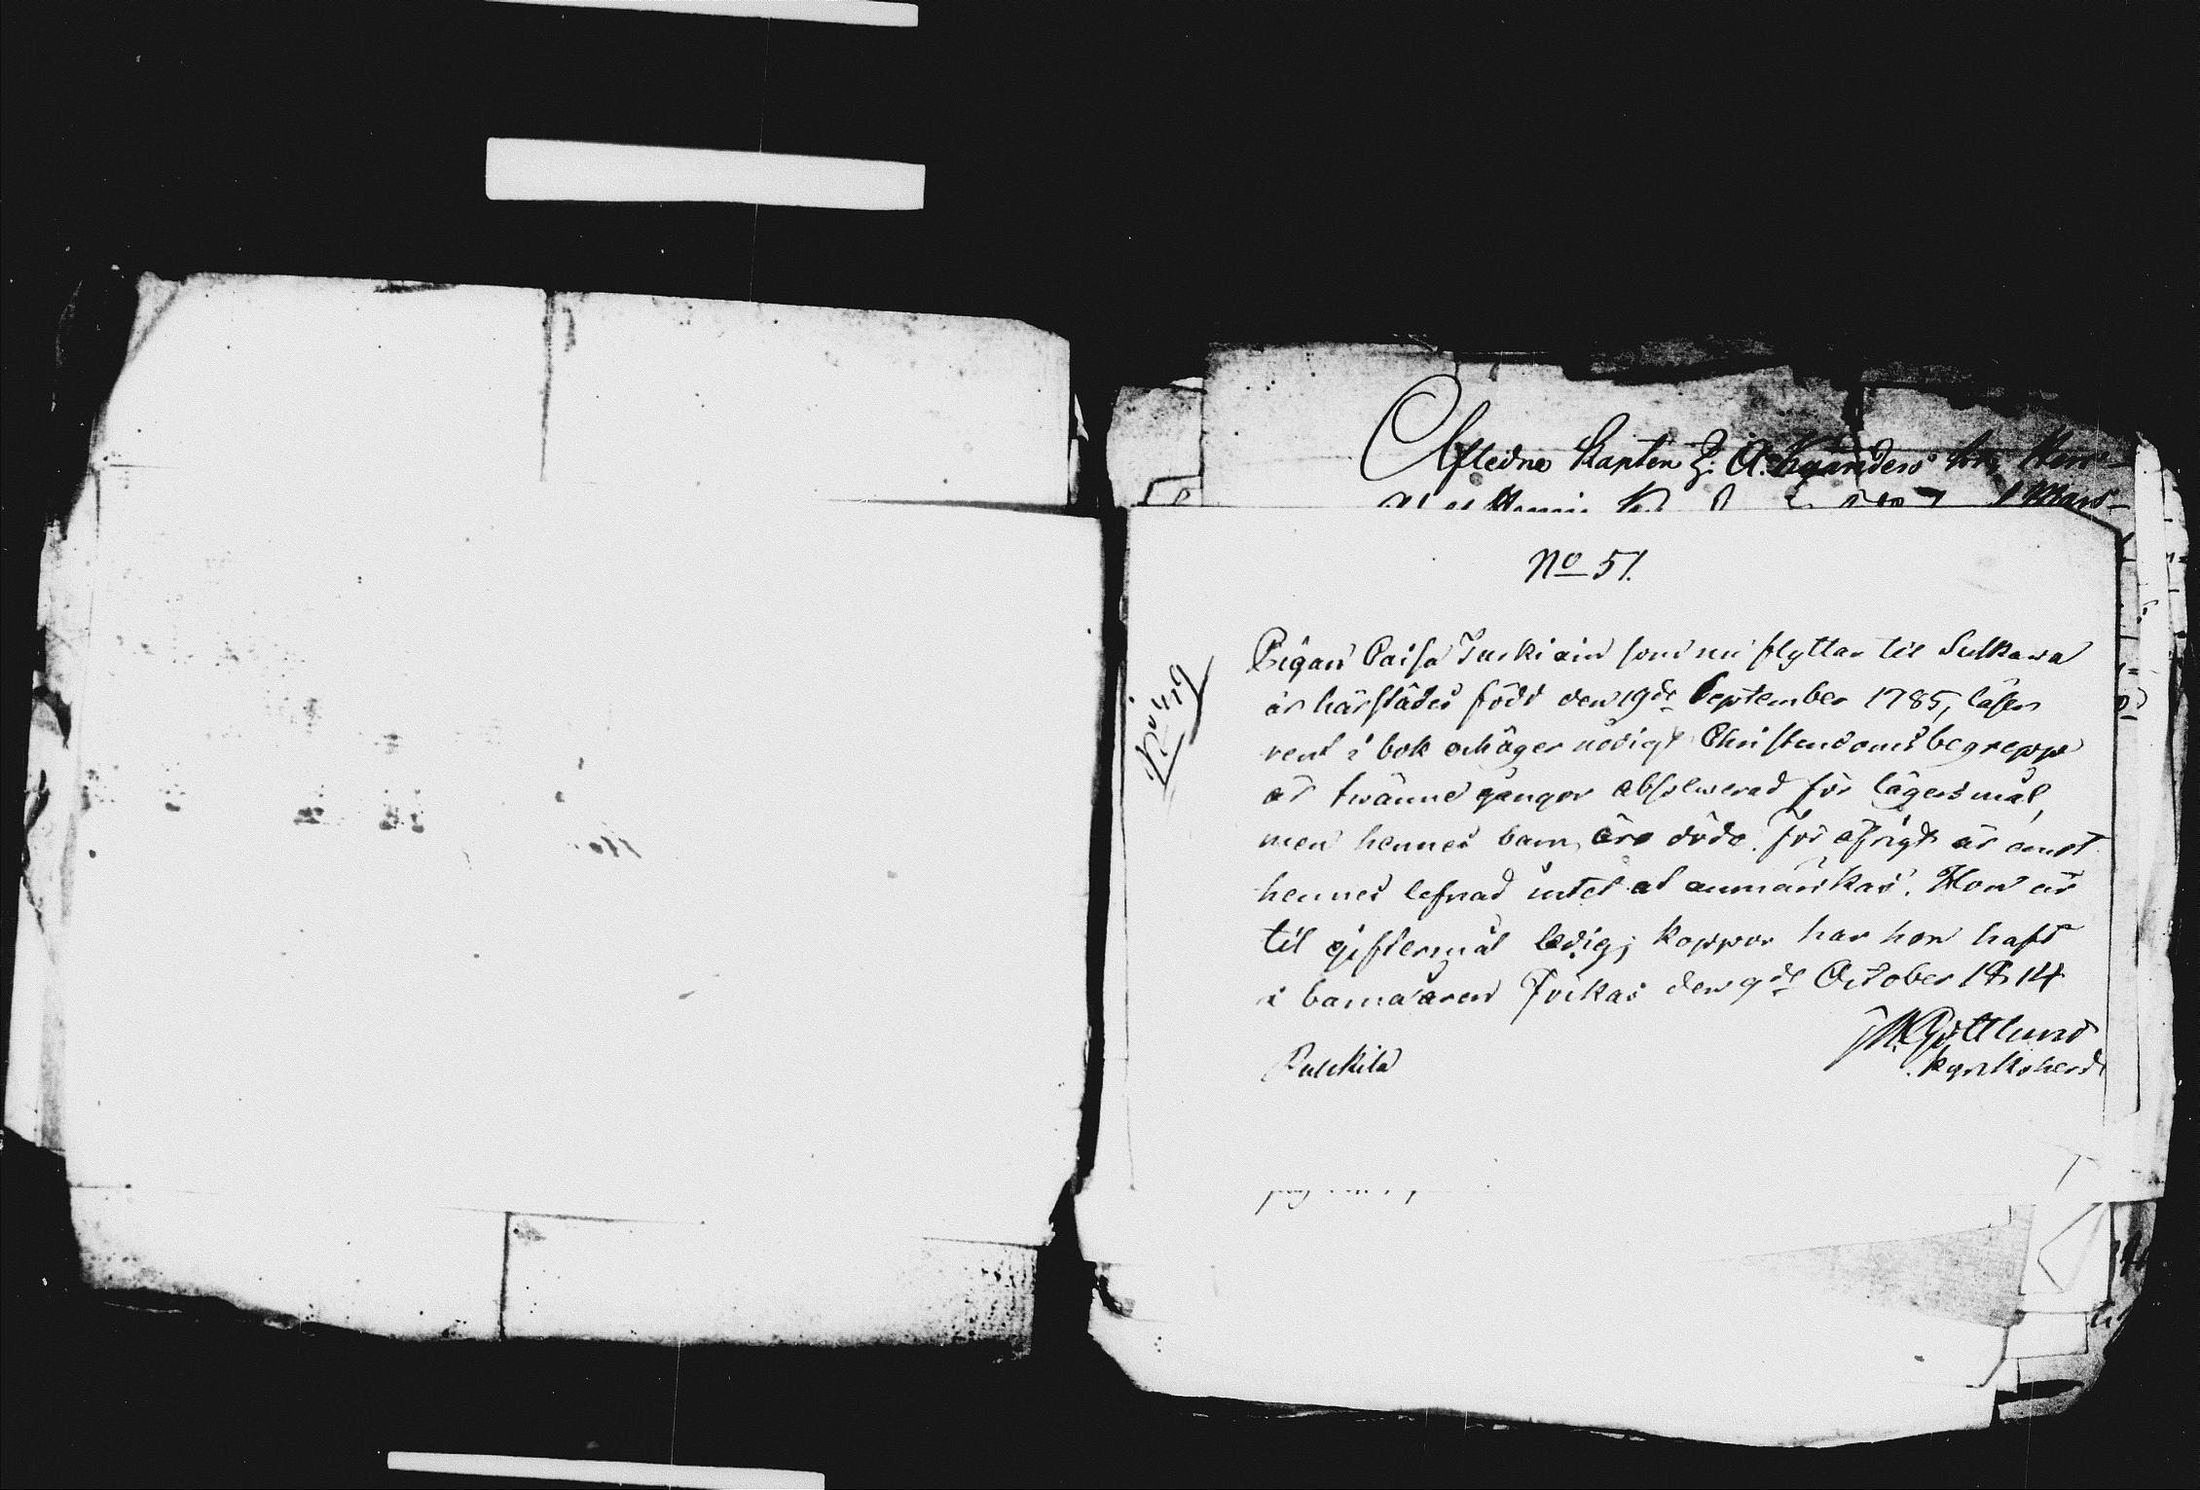 Afledne Kapten Z. A. Kyanders
No 51.
Pigan Caisa Turkiain som nu flyttar til Sulkava
är härstädes född den 19de September 1785, läser
rent i bok och äger nödigt Christendoms begrepp
är twänne gångor absolverad för lägersmål,
men hennes barn äro döde. för öfrigt är emot
hennes lefnad intet at anmärkas. Hon är
til giftermål ledig; koppor har hon haft
i barnaåren Jockas den 9de October 1814
Gottlund
Kyrkoherde
Pulckila